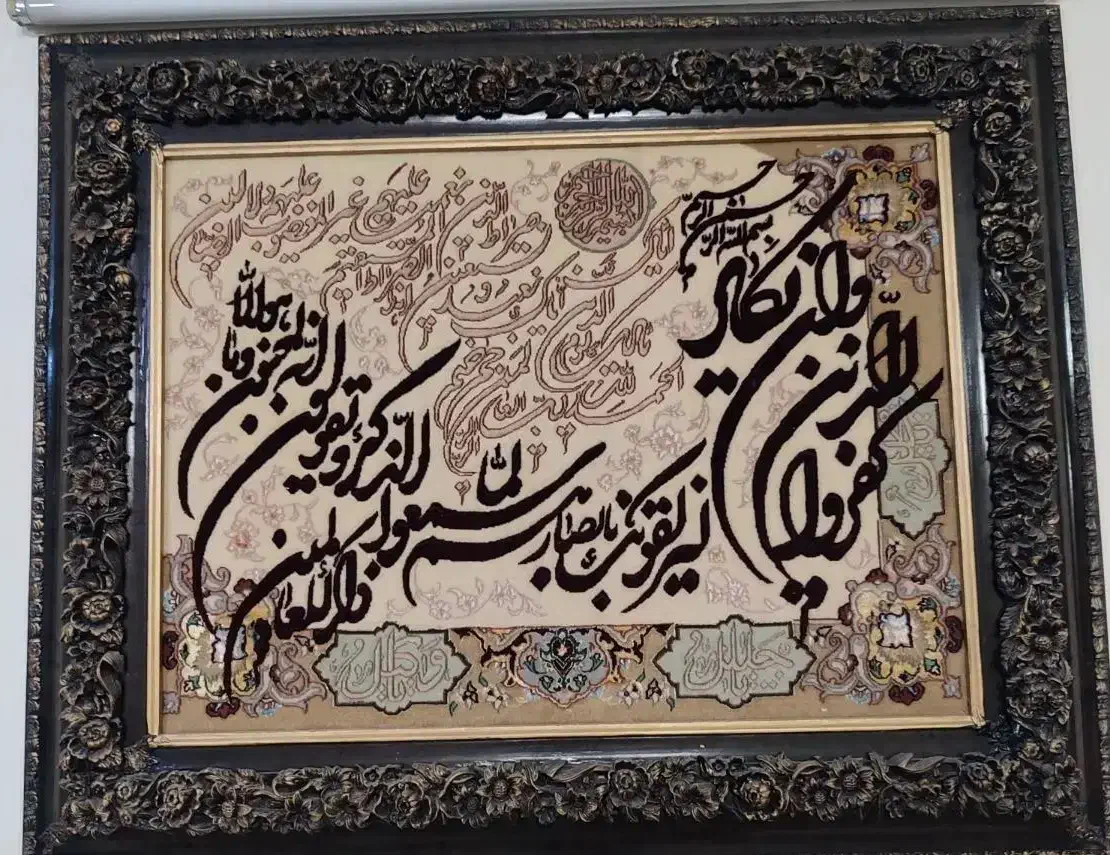 بسم الله الرحمن الرحیم
وان یکاد
الذین
کفروا
لیزلقونک بابصارهم
لما سمعوا
الذکر و یقولون
انه لمجنون وما
هو الا
ذکر للعالمین
بسم الله الرحمن الرحیم
الحمد لله رب العالمین
الرحمن الرحیم
مالک یوم الدین
ایاک نعبد و ایاک نستعین
اهدنا الصراط المستقیم
صراط الذین انعمت علیهم
غیر المغضوب علیهم ولا الضالین